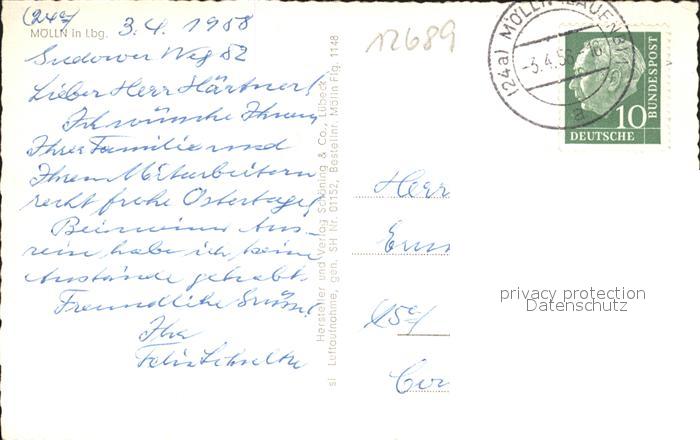 (24a)
MÖLLN in Lbg. 3.4.1958
Sudower Weg 82
Lieber Herr Härtner!
Ich wünsche Ihnen,
Ihrer Familie und
Ihren Mitarbeitern
recht frohe Ostertage!
Bei meiner Aus-
reise habe ich keine
Anstände gehabt.
Freundliche Grüsse!
Ihr
Hersteller und Verlag Schöning & Co., Lübeck
si Luftaufnahme, gen. SH Nr. 01152, Bestellnr. Mölln Flg. 1148
12689
(24a) MÖLLN (LAUENB)
-3.4.58
10
DEUTSCHE
BUNDESPOST
Herr
privacy protection
Datenschutz